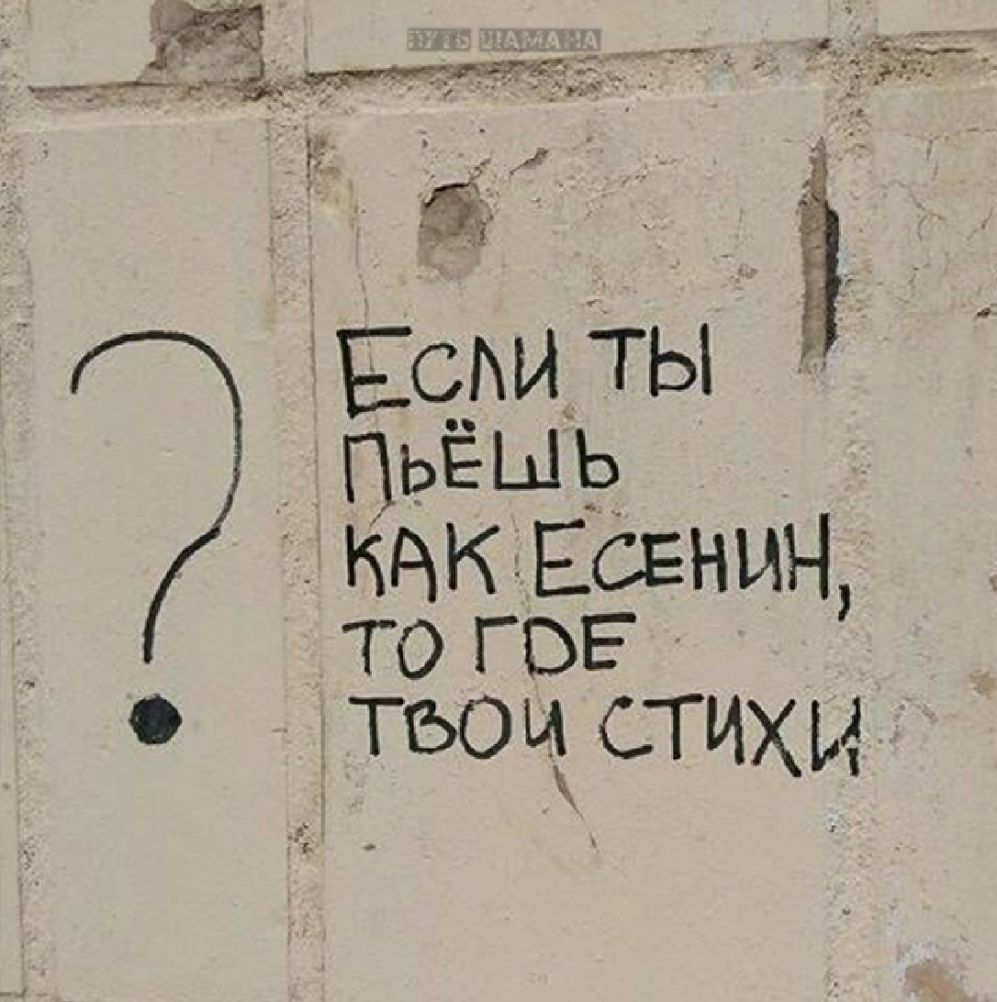 ПУТЬ ШАМАНА
?
Если ты
пьёшь
как Есенин,
то где
твои стихи